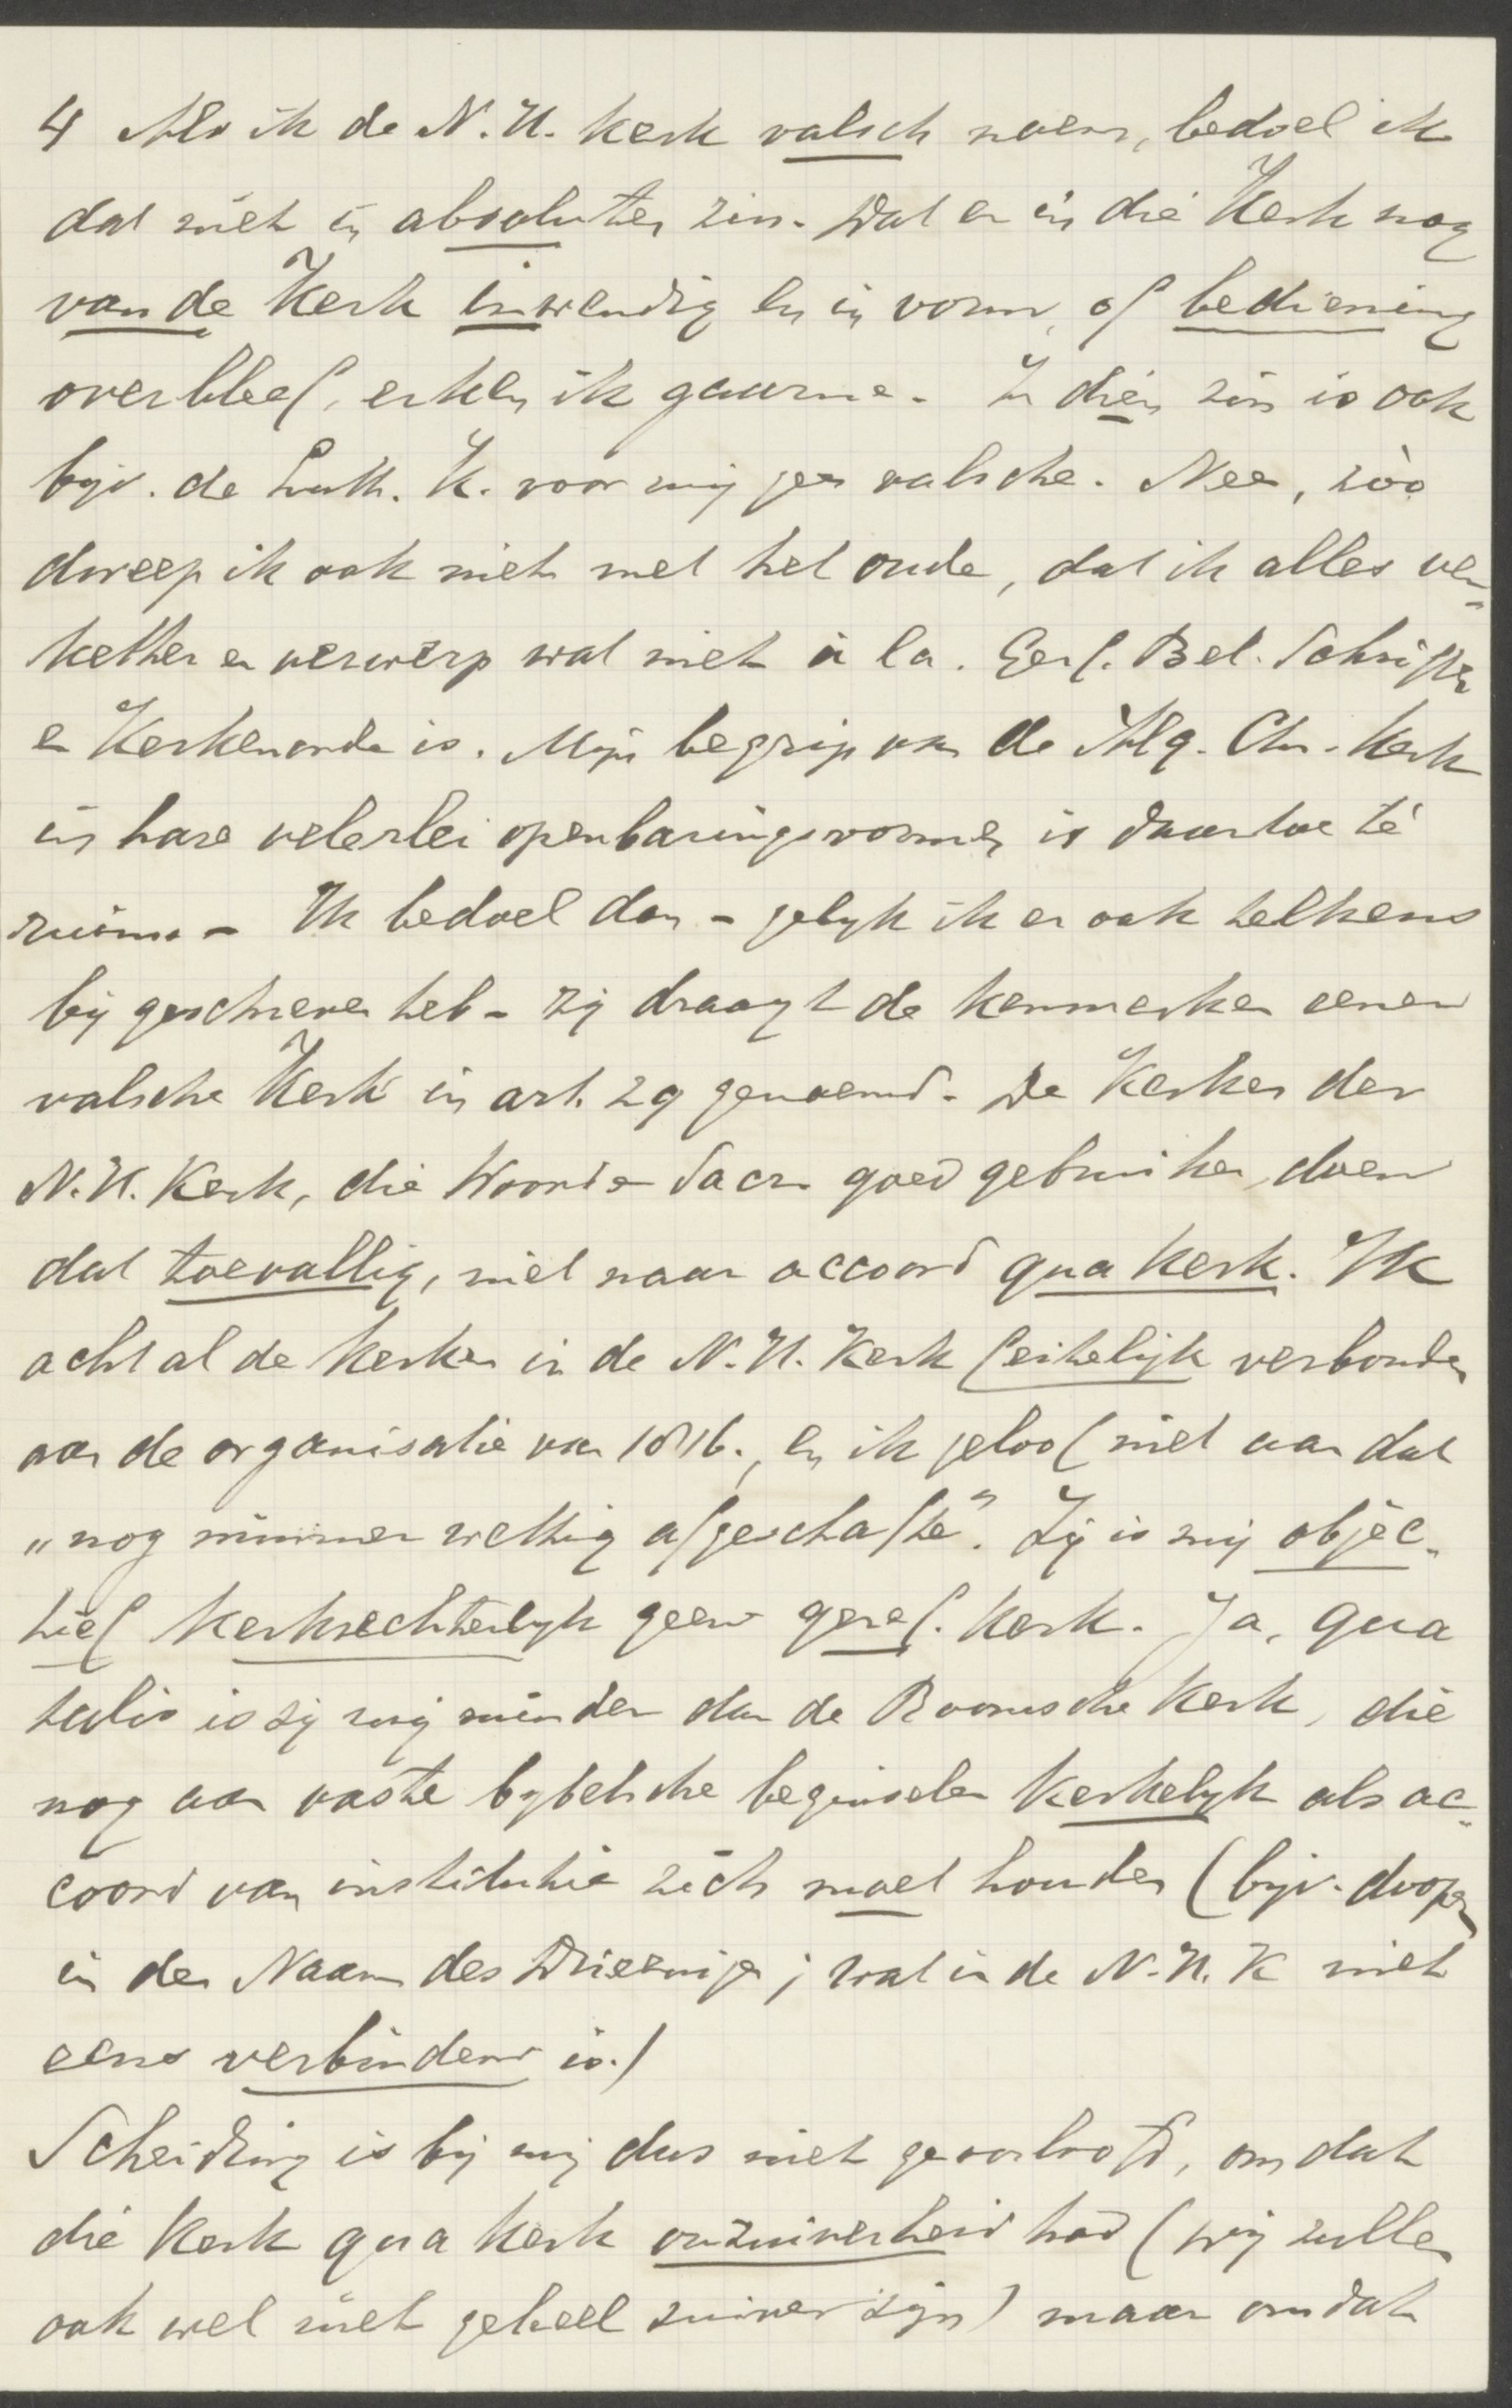 4 Als ik de N.H. kerk valsch noem, bedoel ik
dat niet in absoluten zin. Wat er in die Kerk nog
van de Kerk inwendig en in vorm, of bediening
overbleef, erken ik gaarne. In dien zin is ook
bijv. de Luth. K. voor mij geen valsche. Nee, zòò
dweep ik ook niet met het oude, dat ik alles ver-
ketter en verwerp wat niet à la. Geref. Bel. Schriften
en Kerkenorde is. Mijn begrip van de Alg. Chr. Kerk
in hare velerlei openbaringsvormen is daartoe té
ruim. - Ik bedoel dan - gelijk ik er ook telkens
bij geschreven heb - zij draagt de kenmerken eener
valsche Kerk in art. 29 genoemd. De Kerken der
N.H. Kerk, die Woord en Sacr. goed gebruiken, doen
dat toevallig, niet naar accoord qua kerk. Ik
acht al de kerken in de N.H. Kerk feitelijk verbonden
aan de organisatie van 1816., en ik geloof niet aan dat
„nog nimmer wettig afgeschafte". Zij is mij objec-
tief kerkrechterlijk geen geref. kerk. Ja, qua
talis is zij mij minder dan de Roomsche Kerk, die
nog aan vaste bijbelsche beginselen kerkelijk als ac-
coord van institutie zich moet houden (bijv. doopen
in den Naam des Drieenigen; wat in de N.H.K niet
eens verbindend is.)
Scheiding is bij mij dus niet geoorloofd, omdat
die Kerk qua kerk onzuiverheid had (wij zullen
ook wel niet geheel zuiver zijn) maar omdat